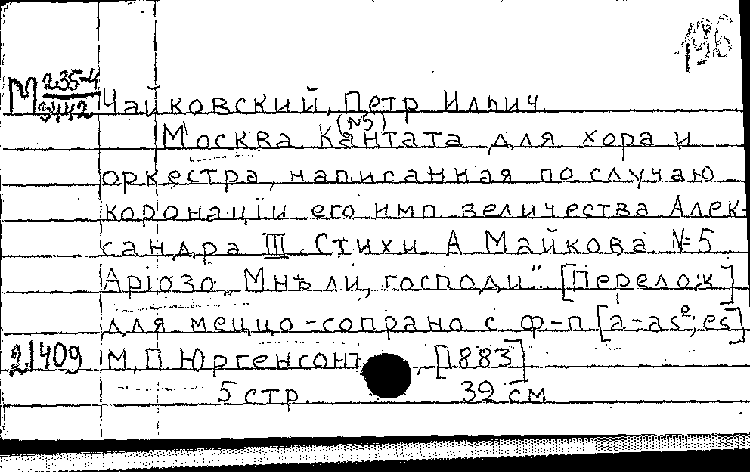 196
М 235-4
3442
Чайковский, Петр Ильич
(№5)
Москва Кантата для хора и
оркестра, написанная по случаю
коронаціи его имп величества Алек-
сандра III. Стихи А Майкова. №5.
Аріозо „Мнѣ ли, господи" [Перелож]
для меццо-сопрано с ф-п [a-as²; es]
21409 М, П Юргенсонъ, [1883]
5 стр. 39 см